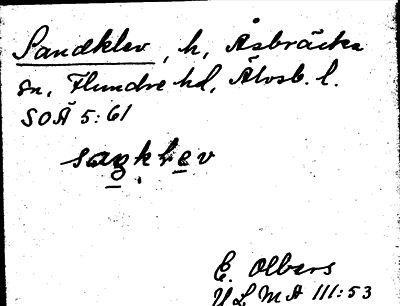 Sandklev, h, Åsbräcka
sn, Flundre hd, Älvsb. l.
SOÄ 5:61
saŋklev
E. Olbers
ULMA 111:53